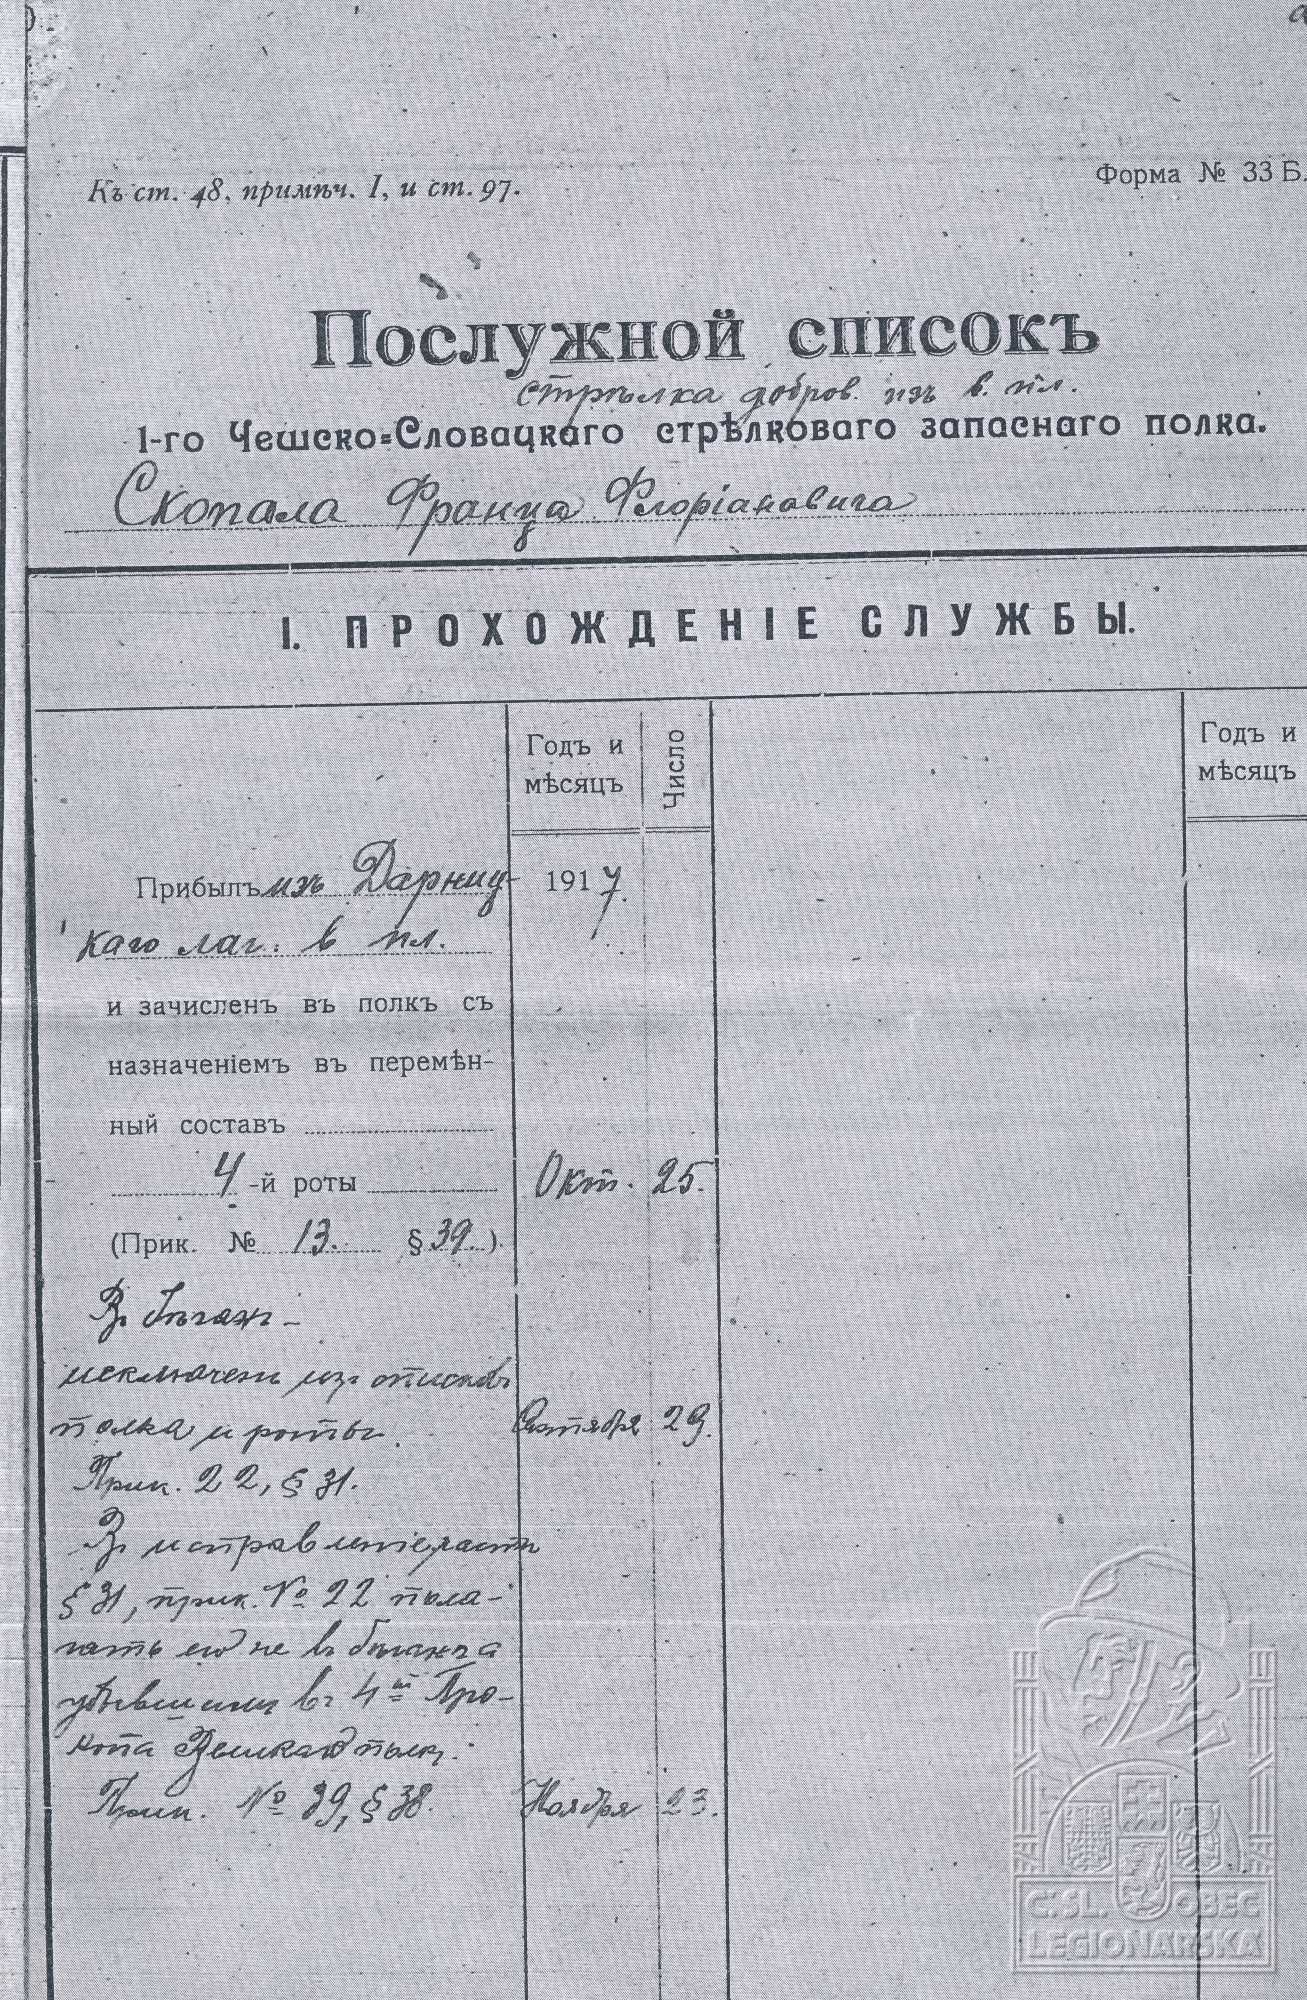 Къ ст. 48, примѣч. I, и ст. 97.
Форма № 33 Б.
Послужной списокъ
стрѣлка добров. изъ в. пл.
1-го Чешско-Словацкаго стрѣлковаго запаснаго полка.
Скопала Франца Флоріановича
I. ПРОХОЖДЕНІЕ СЛУЖБЫ.
Годъ и мѣсяцъ
Число
Годъ и мѣсяцъ
Прибылъ изъ Дарниц- 1917.
каго лаг. в пл.
и зачисленъ въ полкъ съ
назначеніемъ въ перемѣн-
ный составъ
4-й роты Окт. 25.
(Прик. № 13. § 39.).
Въ бѣгахъ -
исключенъ изъ списковъ
полка и роты. 29.
Прик. 22, § 31.
Въ исправленіе части
§ 31, прик. № 22 пола-
гать его не въ бѣгахъ а
убывшимъ въ 4-й Про-
копа Великаго полкъ.
Прик. № 39, § 38. Ноября 23.
Č.SL. OBEC
LEGIONÁŘSKÁ